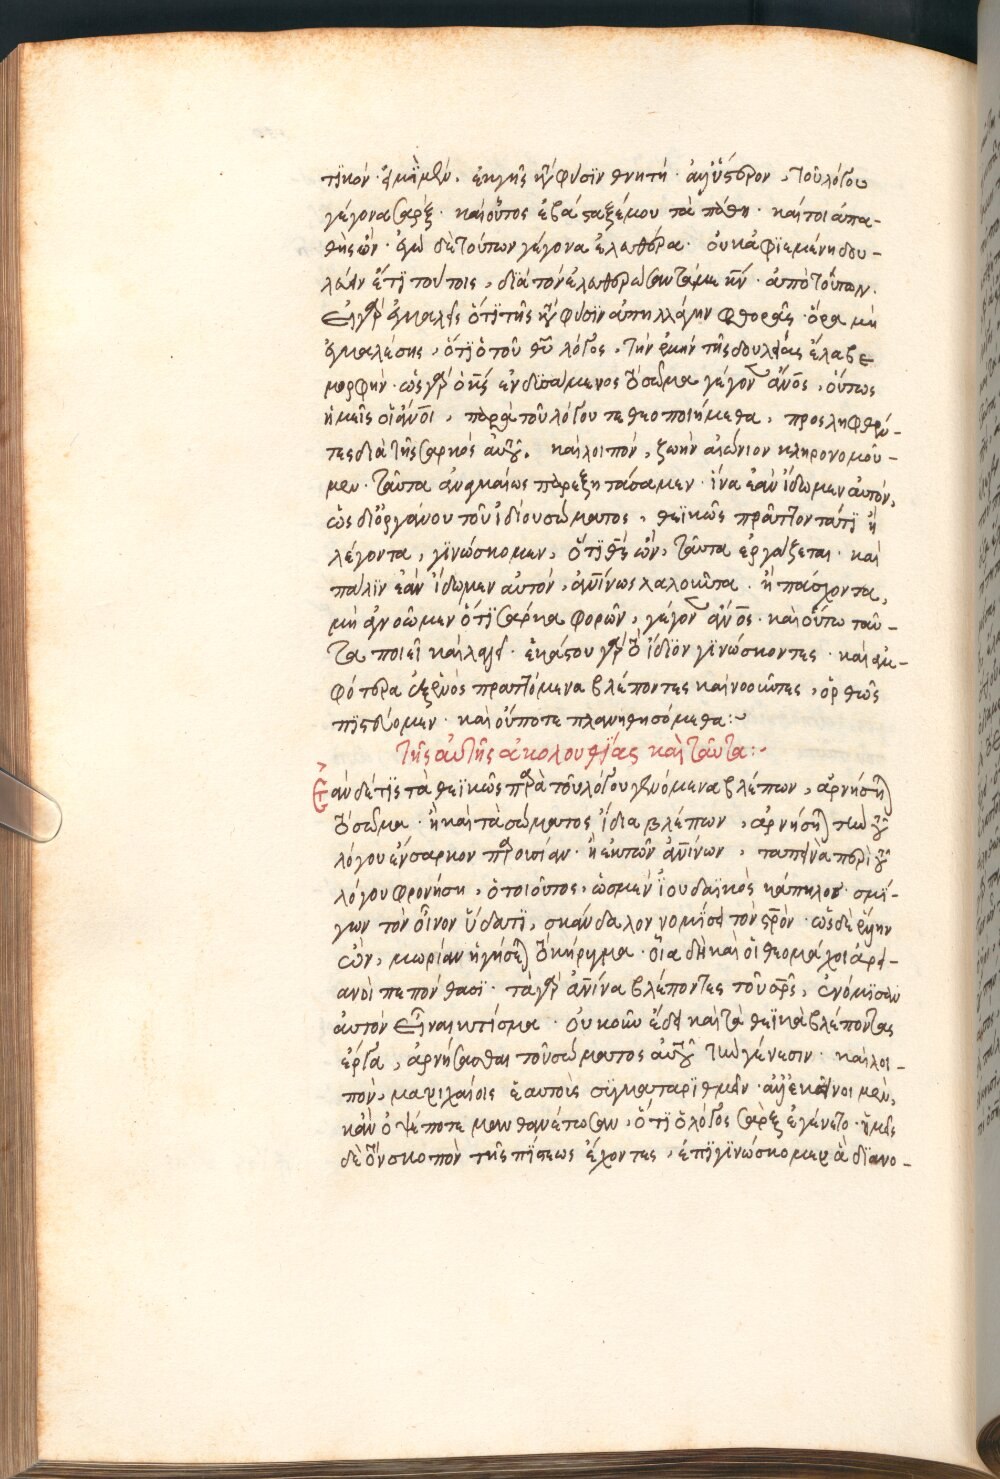 τικόν· εἰμὶ μὲν, ἐκ γῆς κατὰ φύσιν θνητή· ἀλλ' ὕστερον, τοῦ λόγου
γέγονα σάρξ· καὶ οὗτος ἐβάσταξέ μου τὰ πάθη· καίτοι ἀπα-
θὴς ὤν· ἐγὼ δὲ τούτων γέγονα ἐλευθέρα· οὐκ ἀφιεμένη δου-
λεύειν ἔτι τούτοις, διὰ τὸν ἐλευθερώσαντά με κν̄· ἀπὸ τούτων.
εἰ γὰρ ἐγκαλεῖς ὅτι τῆς κατὰ φύσιν ἀπηλλάγην φθορᾶς· ὅρα μὴ
ἐγκαλέσῃς, ὅτι ὁ τοῦ θῡ λόγος, τὴν ἐμὴν τῆς δουλείας ἔλαβε
μορφήν· ὡς γὰρ ὁ κς̄ ἐνδυσάμενος τὸ σῶμα γέγονεν ἄνος̄, οὕτως
ἡμεῖς οἱ ἄνοῑ, παρὰ τοῦ λόγου τε θεοποιήμεθα, προσληφθέν-
τες διὰ τῆς σαρκὸς αὐτοῦ. καὶ λοιπὸν, ζωὴν αἰώνιον κληρονομοῦ-
μεν· ταῦτα ἀναγκαίως παρεξητάσαμεν· ἵνα ἐὰν ἴδωμεν αὐτὸν,
ὡς δι' ὀργάνου τοῦ ἰδίου σώματος, θεϊκῶς πράττοντά τι ἢ
λέγοντα, γινώσκομεν, ὅτι θς̄ ὢν, ταῦτα ἐργάζεται· καὶ
πάλιν ἐὰν ἴδωμεν αὐτὸν, ἀνίνως λαλοῦντα· ἢ πάσχοντα,
μὴ ἀγνοῶμεν ὅτι σάρκα φορῶν, γέγονεν ἄνος̄· καὶ οὕτω ταῦ-
τα ποιεῖ καὶ λαλεῖ· ἑκάστου γὰρ τὸ ἴδιον γινώσκοντες· καὶ ἀμ-
φότερα ἐξ ἑνὸς πραττόμενα βλέποντες καὶ νοοῦντες, ὀρθῶς
πιστεύομεν· καὶ οὔποτε πλανηθησόμεθα:~
τῆς αὐτῆς ἀκολουθίας καὶ ταῦτα:~
Ἐὰν δέ τις τὰ θεϊκῶς παρὰ τοῦ λόγου γινόμενα βλέπων, ἀρνήσηται
τὸ σῶμα· ἢ καὶ τὰ σώματος ἴδια βλέπων, ἀρνήσηται τὴν τοῦ
λόγου ἔνσαρκον παρουσίαν· ἢ ἐκ τῶν ἀνίνων, ταπεινὰ περὶ τοῦ
λόγου φρονήσῃ, ὁ τοιοῦτος, ὡς μὲν ἰουδαϊκὸς κάπηλος· σμί-
γων τὸν οἶνον ὕδατι, σκάνδαλον νομίσει τὸν σρὸν· ὡς δὲ ἕλλην
ὢν, μωρίαν ἡγήσεται τὸ κήρυγμα· οἷα δὴ καὶ οἱ θεομάχοι ἀρει-
ανοὶ πεπόνθασι· τὰ γὰρ ἀνίνα βλέποντες τοῦ σρ̄ς, ἐνόμισαν
αὐτὸν εἶναι κτίσμα· οὐκοῦν ἔδει καὶ τὰ θεϊκὰ βλέποντας
ἔργα, ἀρνήσασθαι τοῦ σώματος αὐτοῦ τὴν γένεσιν· καὶ λοι-
πὸν, μανιχαίοις ἑαυτοὺς συγκαταριθμεῖν· ἀλλ' ἐκεῖνοι μὲν,
κἂν ὀψέ ποτε μανθανέτωσαν, ὅτι ὁ λόγος σὰρξ ἐγένετο· ἡμεῖς
δὲ τὸν σκοπὸν τῆς πίστεως ἔχοντες, ἐπιγινώσκομεν ἃ διανο-